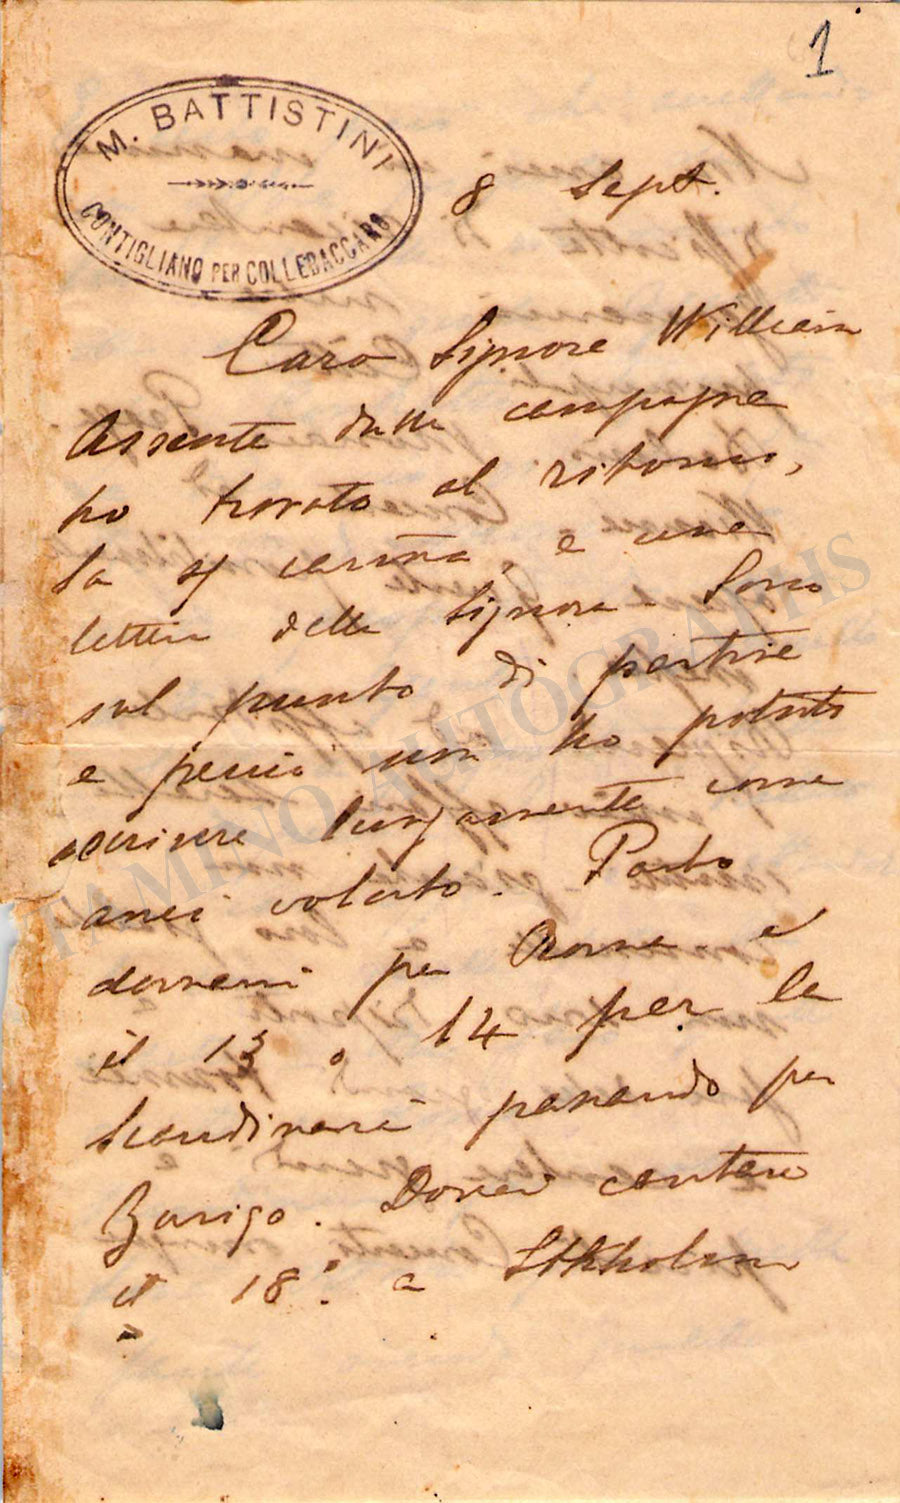 1
M. BATTISTINI
CONTIGLIANO PER COLLEBACCARO
8 Sept.
Caro Signore William
Assente dalla campagna
ho trovato al ritorno,
la cartolina, e una
lettera della Signora. Sono
sul punto di partire
e perciò non ho potuto
scrivere lungamente come
avrei voluto. Parto
domani per Roma e
il 13 o 14 per la
Scandinavia passando per
Zurigo. Dovrei cantare
il 18. a Stkholm
TAMINO AUTOGRAPHS